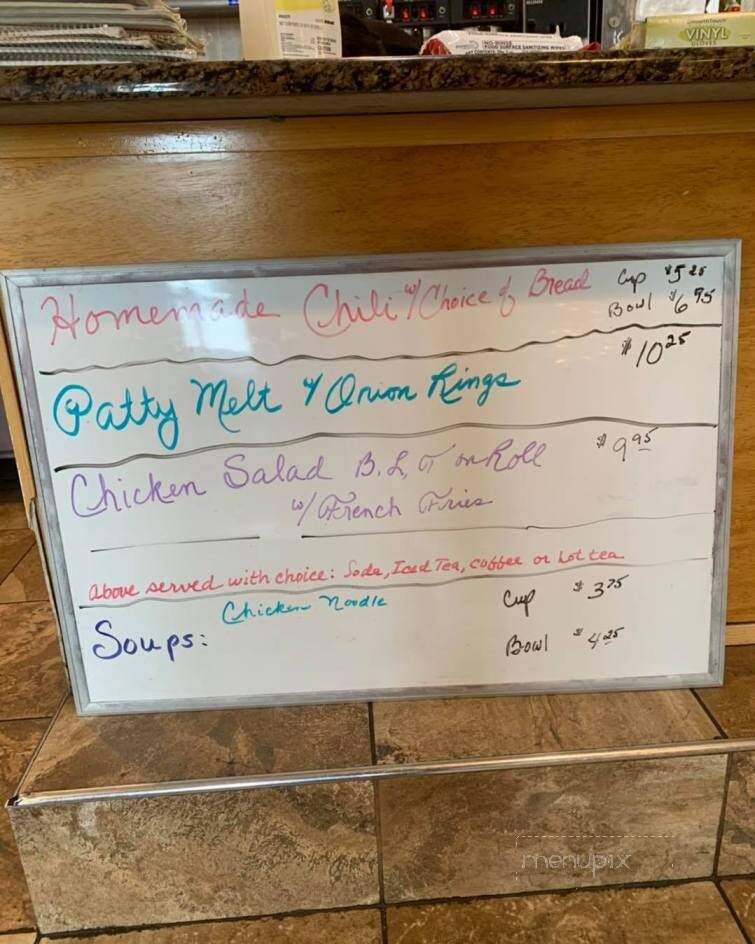 VINYL
GLOVES
NO-RINSE
FOOD SURFACE SANITIZING WIPES
Homemade Chili w/ Choice of Bread Cup $5 25
Bowl $6 95
Patty Melt w/ Onion Rings $10 25
Chicken Salad B.L.T on Roll $9 95
w/ French Fries
Above served with choice: Soda, Iced Tea, coffee or hot tea
Chicken Noodle Cup $3 75
Soups: Bowl $4 25
menupix